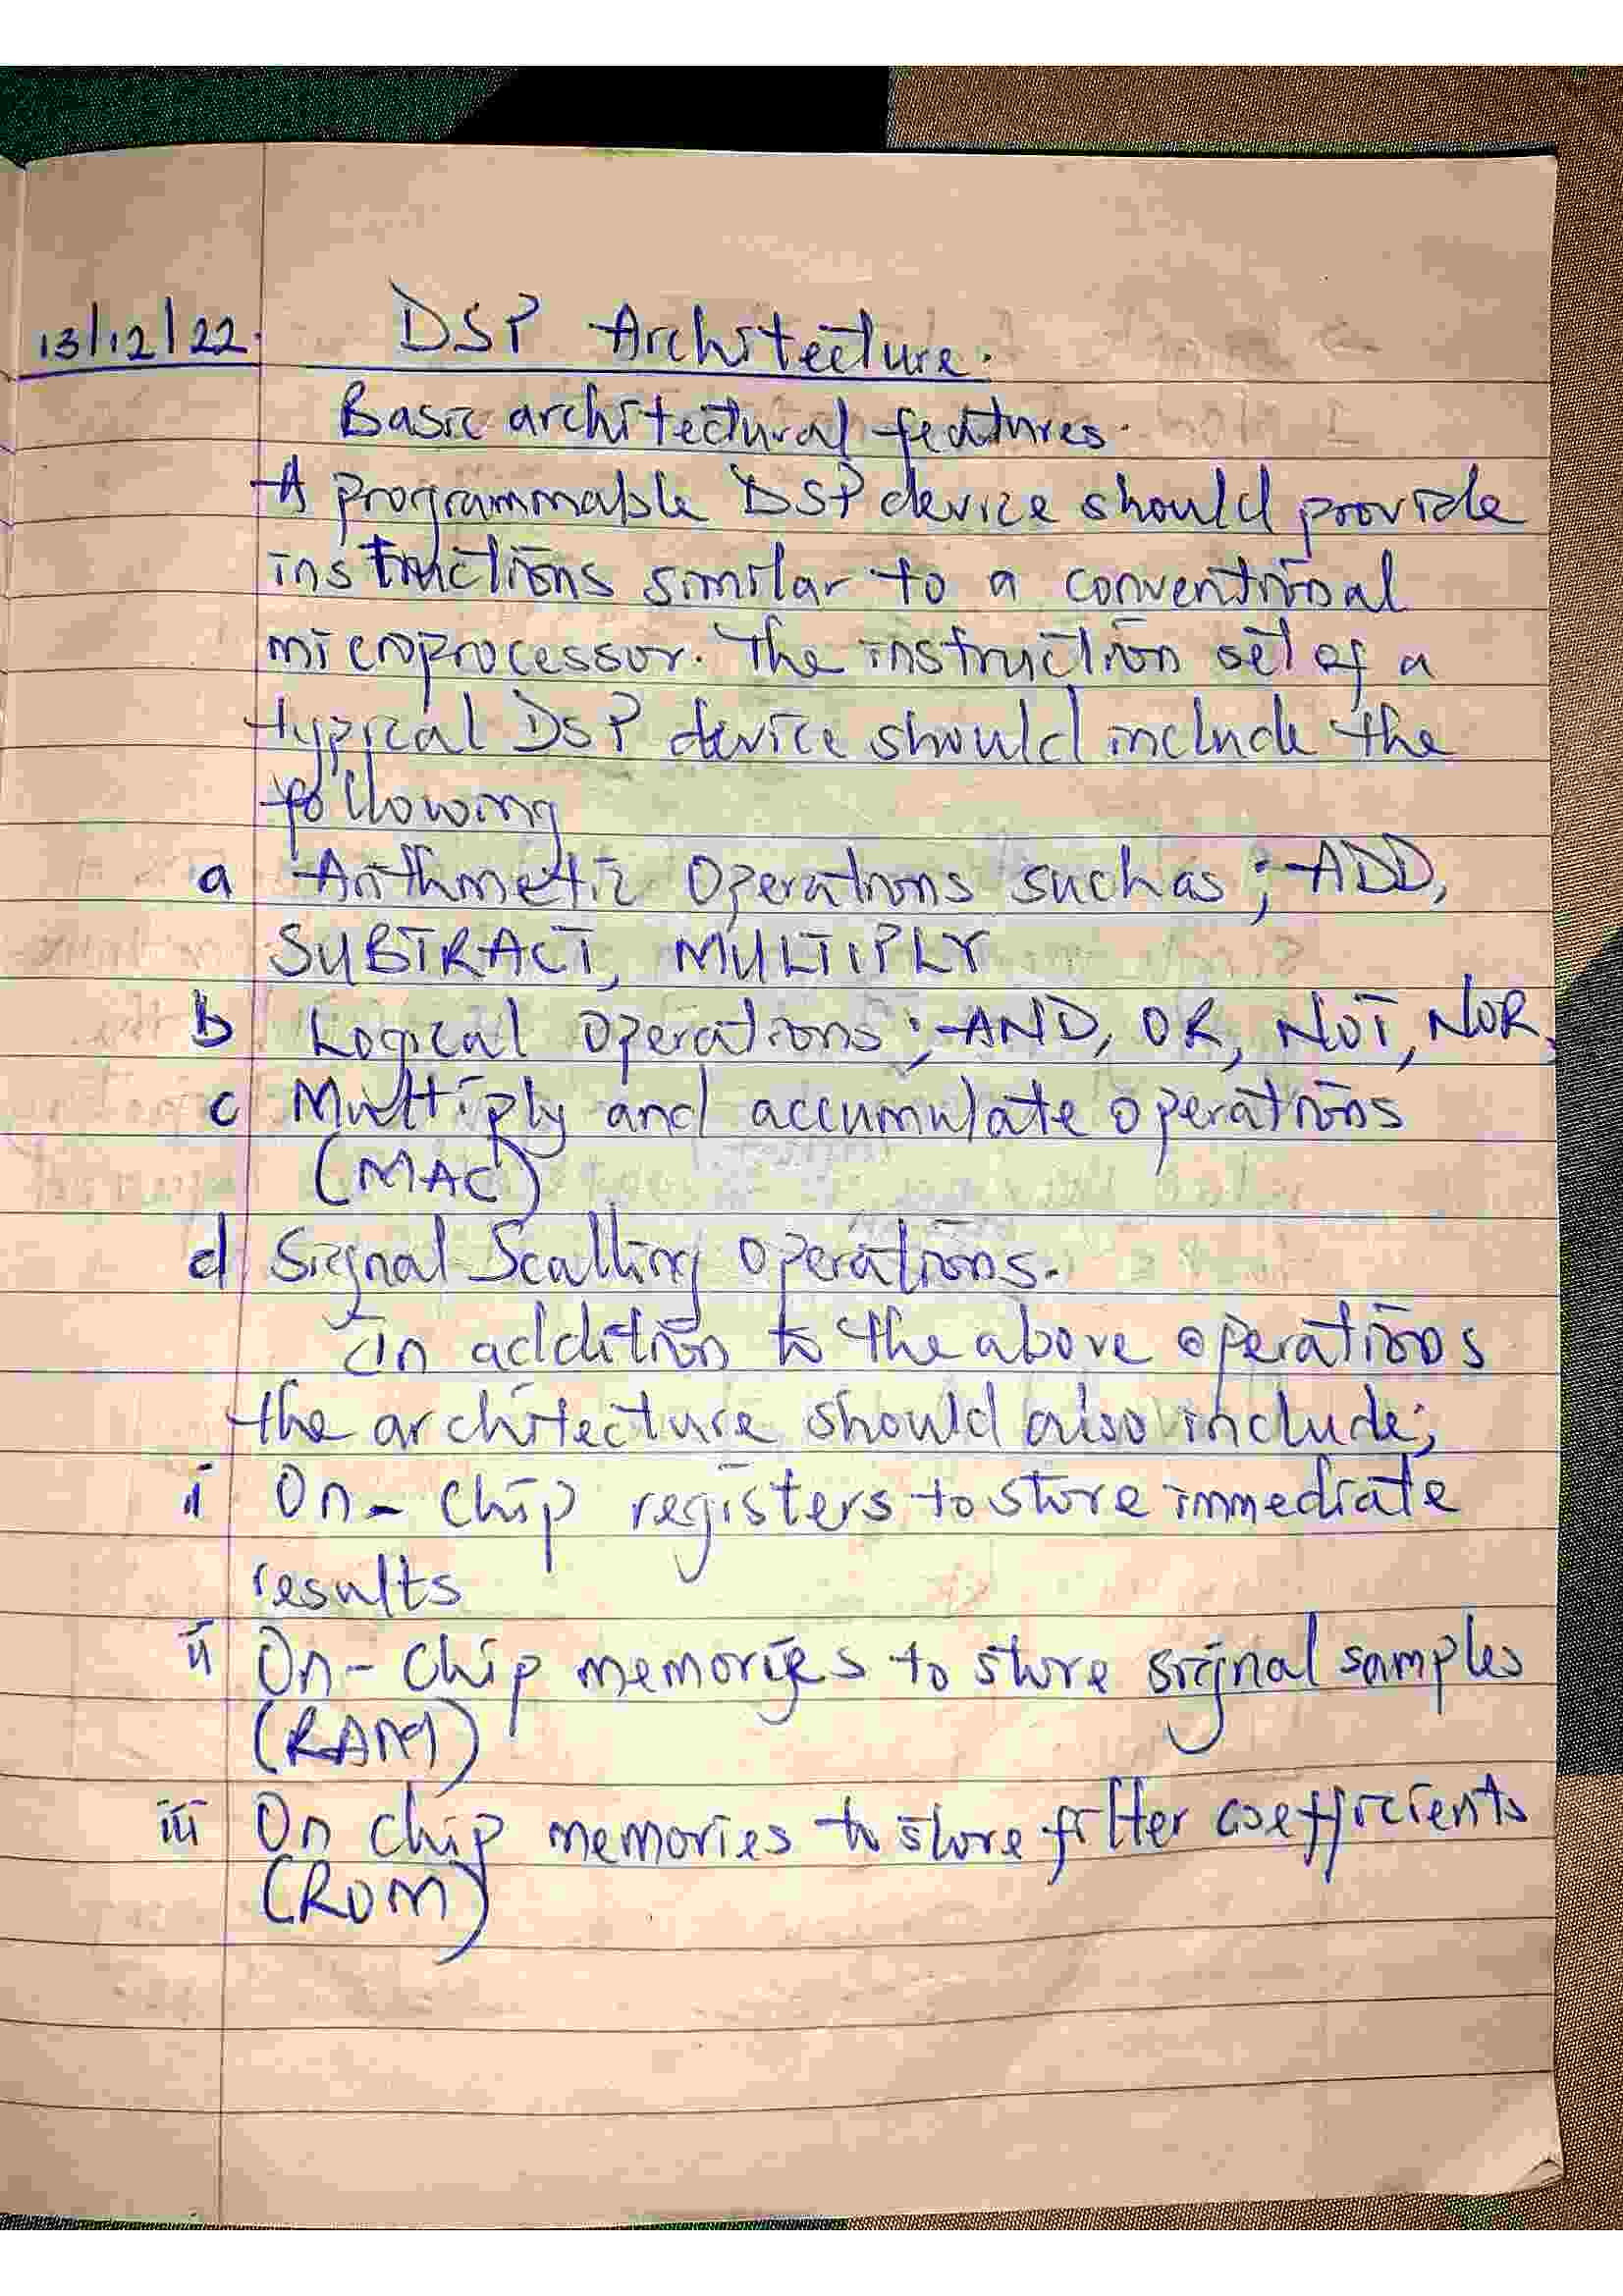 13/12/22. DSP Architecture.
Basic architectural features.
A programmable DSP device should provide
instructions similar to a conventional
microprocessor. The instruction set of a
typical DSP device should include the
following
a Arithmetic Operations such as ; ADD,
SUBTRACT, MULTIPLY
b Logical operations ; AND, OR, NOT, NOR,
c Multiply and accumulate operations
(MAC)
d Signal Scalling operations.
In addition to the above operations
the architecture should also include;
i On-chip registers to store immediate
results
ii On-chip memories to store signal samples
(RAM)
iii On chip memories to store filter coefficients
(ROM)